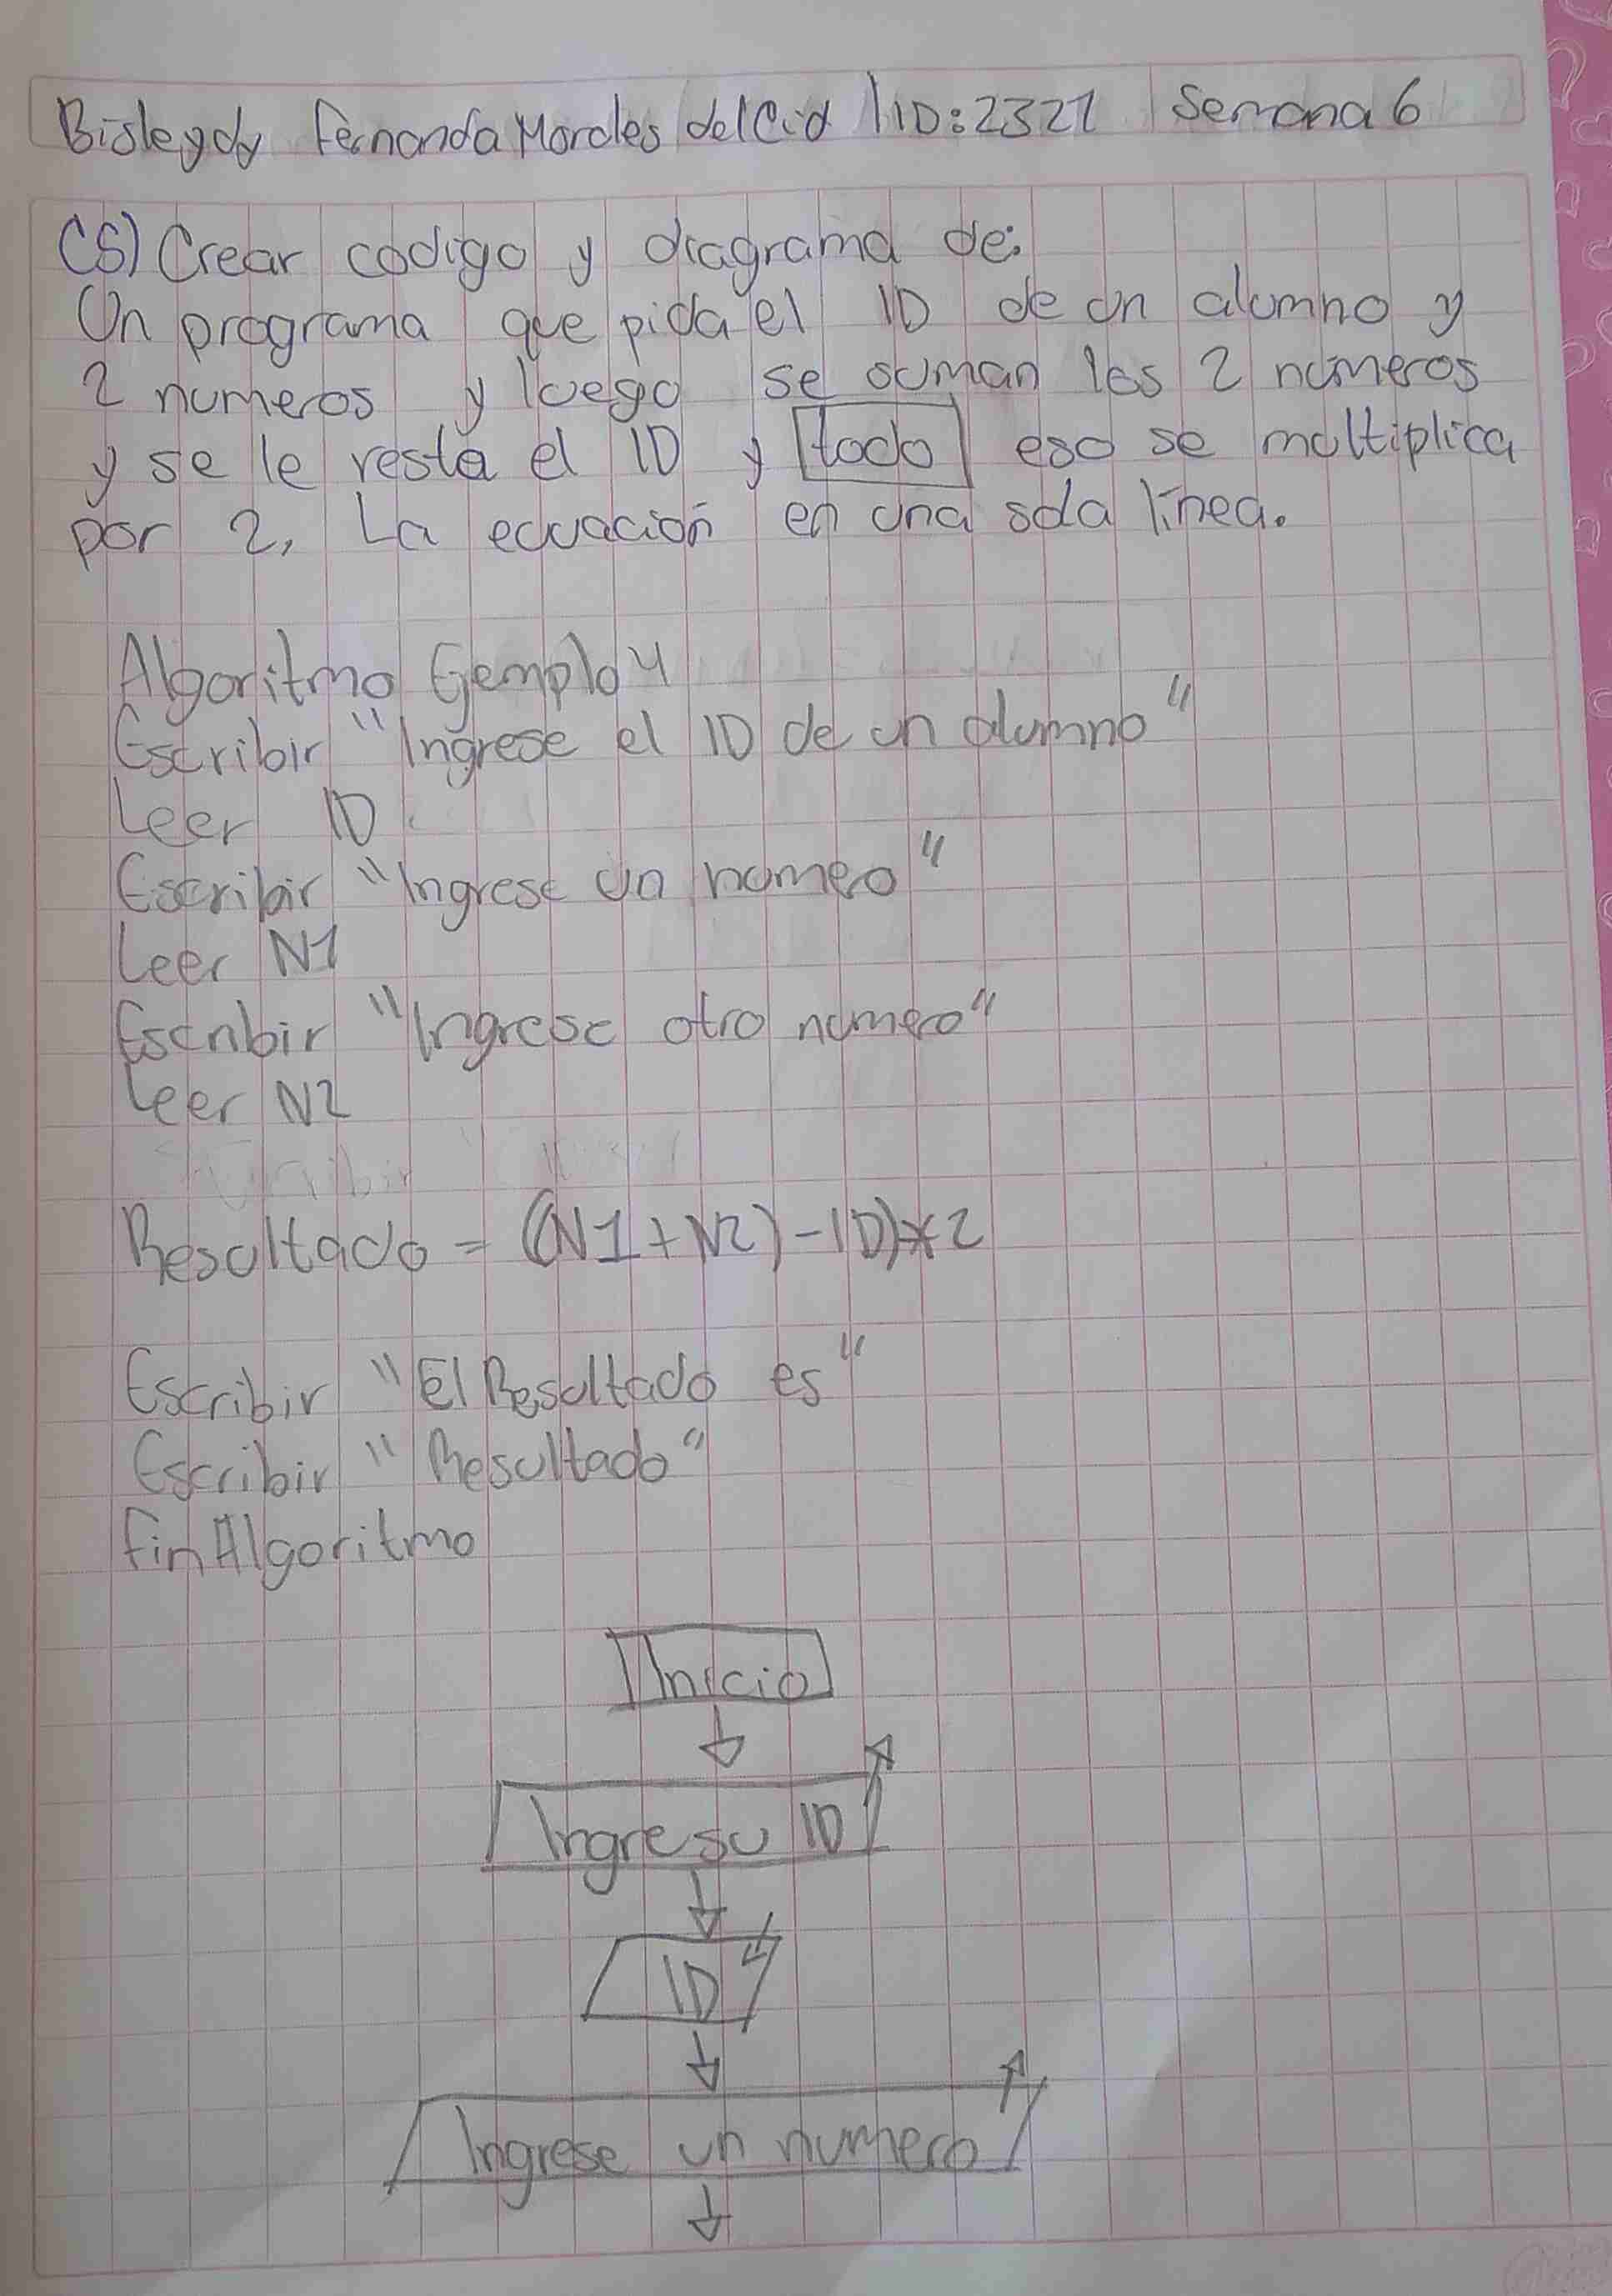 Bisleydy Fernanda Morales del Cid | ID: 2321 Semana 6
CS) Crear codigo y diagrama de:
Un programa que pida el ID de un alumno y
2 numeros y luego se suman los 2 números
y se le resta el ID y todo eso se multiplica
por 2, La ecuación en una sola línea.
Algoritmo Ejemplo 4
Escribir "Ingrese el ID de un alumno"
Leer ID
Escribir "Ingrese un numero"
Leer N1
Escribir "Ingrese otro numero"
Leer N2
Resultado = ((N1+N2)-ID)*2
Escribir "El Resultado es"
Escribir "Resultado"
fin Algoritmo
Inicio
Ingrese su ID
ID
Ingrese un numero